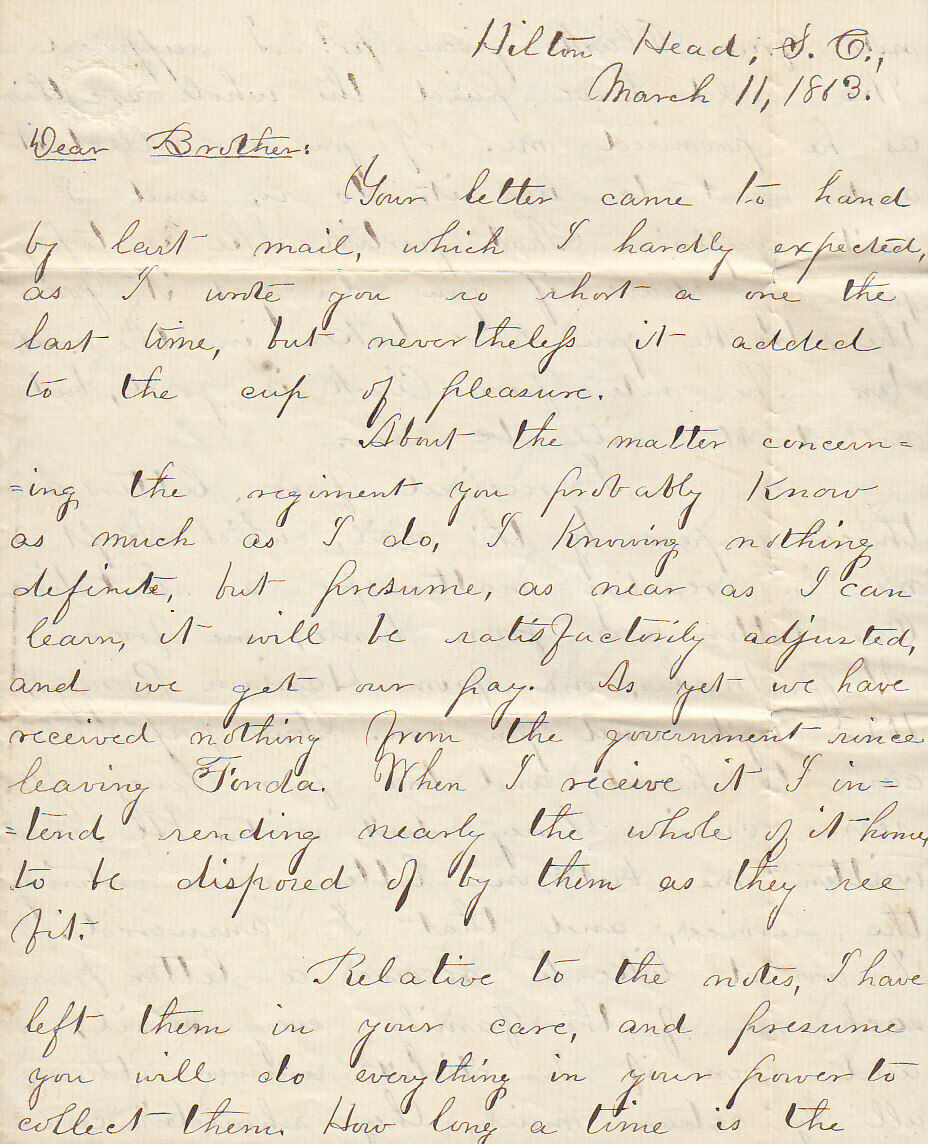 Hilton Head, S. C.,
March 11, 1863.
Dear Brother:
Your letter came to hand
by last mail, which I hardly expected,
as I wrote you so short a one the
last time, but nevertheless it added
to the cup of pleasure.
About the matter concern=
=ing the regiment you probably know
as much as I do, I knowing nothing
definite, but presume, as near as I can
learn, it will be satisfactorily adjusted,
and we get our pay. As yet we have
received nothing from the government since
leaving Fonda. When I receive it I in=
=tend sending nearly the whole of it home,
to be disposed of by them as they see
fit.
Relative to the notes, I have
left them in your care, and presume
you will do everything in your power to
collect them. How long a time is the